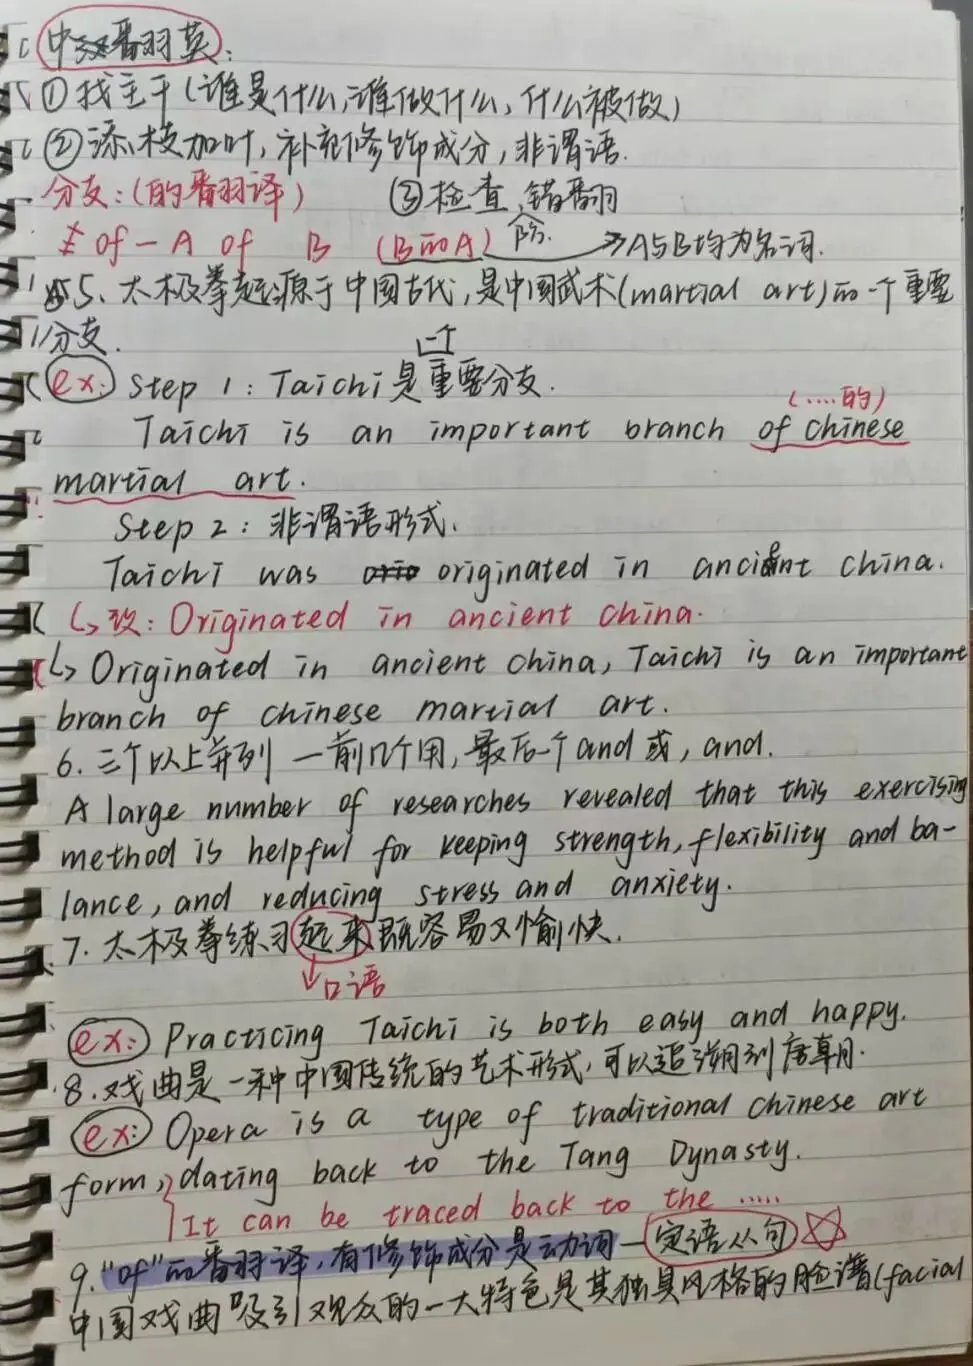 中汉番羽英:
①找主干(谁是什么,谁做什么,什么被做)
②添枝加叶,补充修饰成分,非谓语.
分支:(的番羽译) ③检查,错番羽
of - A of B (B的A) 阶. → A与B均为名词.
5. 太极拳起源于中国古代,是中国武术(martial art)的一个重要
分支.
ex: Step 1: Taichi是一个重要分支.
(....的)
Taichi is an important branch of chinese
martial art.
Step 2: 非谓语形式.
Taichi was originated in ancient china.
↳ 改: Originated in ancient china.
↳ Originated in ancient china, Taichi is an important
branch of chinese martial art.
6. 三个以上并列 — 前几个用, 最后一个and 或, and.
A large number of researches revealed that this exercising
method is helpful for keeping strength, flexibility and ba-
lance, and reducing stress and anxiety.
7. 太极拳练习起来既容易又愉快.
↓口语
ex: Practicing Taichi is both easy and happy.
8. 戏曲是一种中国传统的艺术形式,可以追溯到唐朝.
ex: Opera is a type of traditional chinese art
form, dating back to the Tang Dynasty.
It can be traced back to the .....
9. "of"的番羽译,有修饰成分是动词—定语从句
中国戏曲吸引观众的一大特色是其独具风格的脸谱(facial